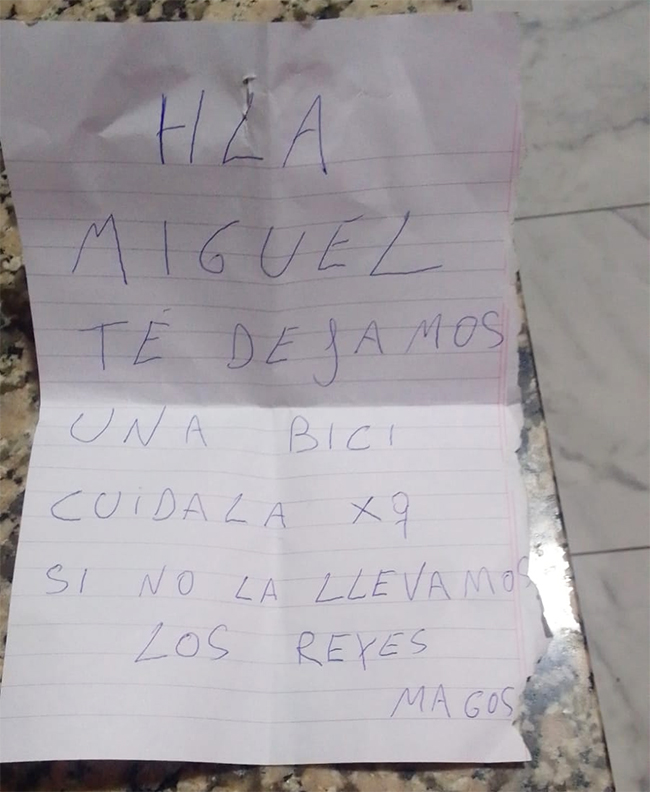 HLA
MIGUEL
TÉ DEJAMOS
UNA BICI
CUIDALA xq
SI NO LA LLEVAMOS
LOS REYES
MAGOS